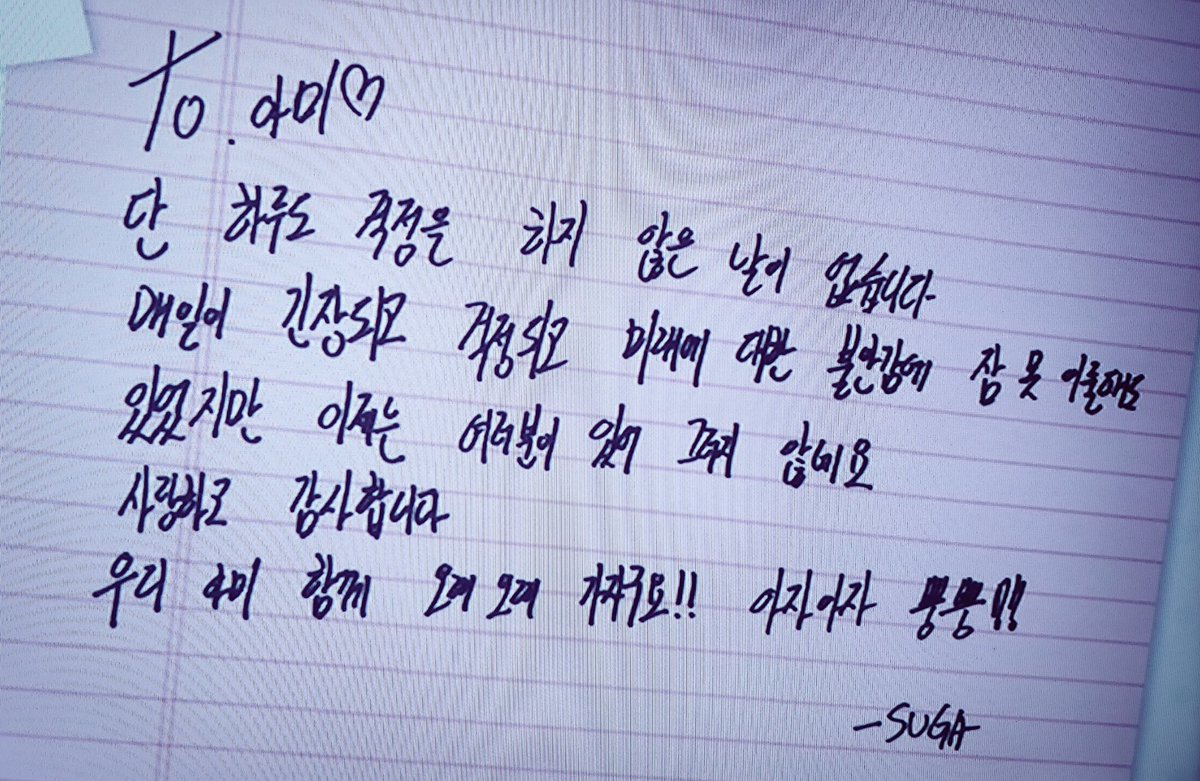 To. 아미♡
단 하루도 걱정을 하지 않은 날이 없습니다
매일이 긴장되고 걱정되고 미래에 대한 불안감에 잠 못 이룰때도
있었지만 이제는 여러분이 있어 그러지 않네요
사랑하고 감사합니다
우리 아미 함께 오래오래 가자구요!! 아자아자 뿅뿅!!
-SUGA-